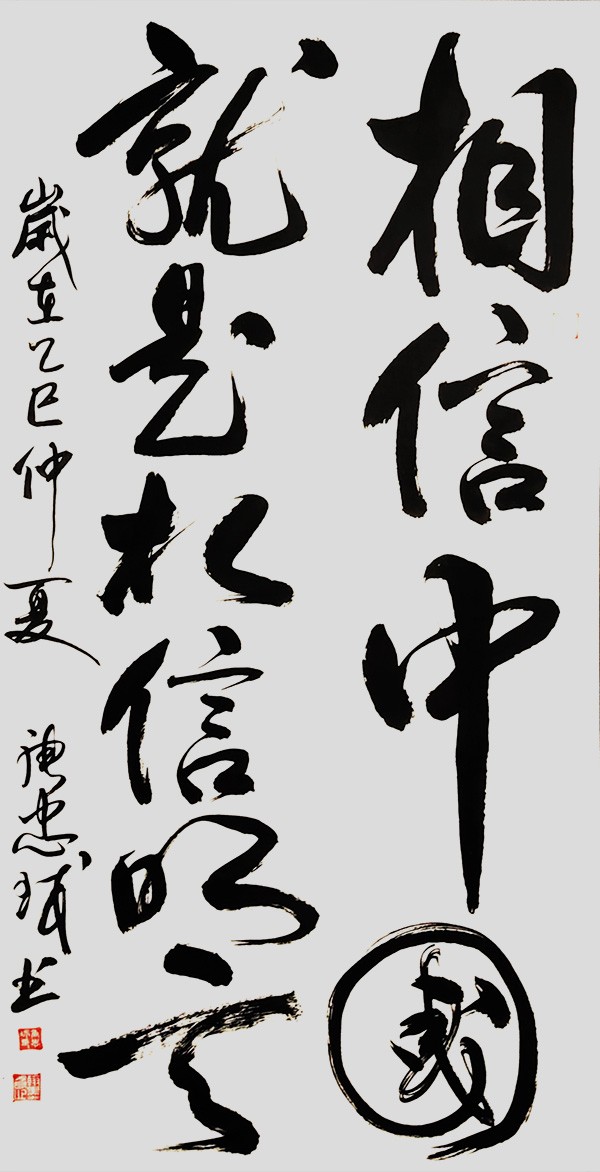 相信中國
就是相信明天
歲在乙巳仲夏 忠 书